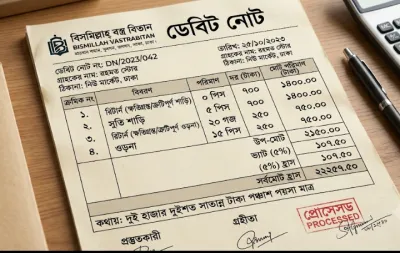 বিসমিল্লাহ বস্ত্র বিতান
BISMILLAH VASTRABITAN
ডেবিট নোট
ডেবিট নোট নং: DN/2023/042
তারিখ: ২৫/১০/২০২৩
গ্রাহকের নাম: রহমত স্টোর
গ্রাহকের নাম: রহমত স্টোর
ঠিকানা: নিউ মার্কেট, ঢাকা
ঠিকানা: নিউ মার্কেট, ঢাকা
ক্রমিক নং বিবরণ পরিমাণ দর (টাকা) মোট পরিমাণ (টাকা)
১. রিটার্ন (ক্ষতিগ্রস্ত/ত্রুটিপূর্ণ শাড়ি) ০ পিস ৭০০ ১৪০০.০০
২. সুতি শাড়ি ৫ পিস ৭০০ ১৪০০.০০
৩. রিটার্ন (ক্ষতিগ্রস্ত/ত্রুটিপূর্ণ ওড়না) ২০ গজ ২৫০ ৭৫০.০০
৪. ওড়না ১৫ পিস ২৫০ ৭৫০.০০
উপ-মোট ২১৫০.০০
ভ্যাট (৫%) ১০৭.৫০
(৫%) হ্রাস ১০৭.৫০
সর্বমোট হ্রাস ২২২৫৭.৫০
কথায়: দুই হাজার দুইশত সাতান্ন টাকা পঞ্চাশ পয়সা মাত্র
প্রস্তুতকারী
গ্রহীতা
প্রোসেসড
PROCESSED